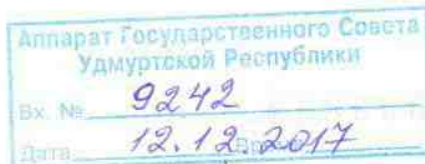 Аппарат Государственного Совета
Удмуртской Республики
Вх. № 9242
Дата 12.12.2017